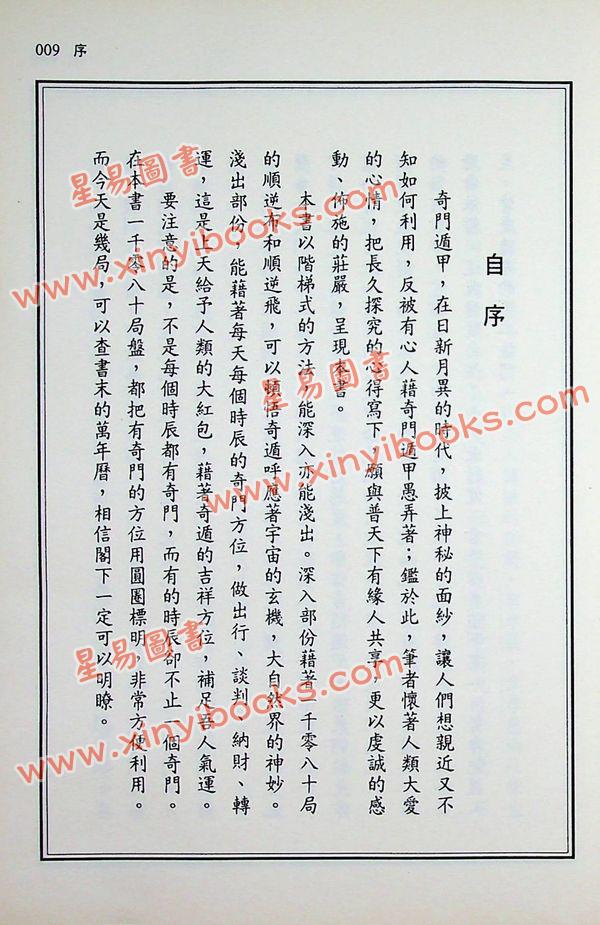 009 序
自序
奇門遁甲，在日新月異的時代，披上神秘的面紗，讓人們想親近又不
知如何利用，反被有心人藉奇門遁甲愚弄著；鑑於此，筆者懷著人類大愛
的心情，把長久探究的心得寫下，願與普天下有緣人共享，更以虔誠的感
動、佈施的莊嚴，呈現本書。
本書以階梯式的方法，能深入亦能淺出。深入部份藉著一千零八十局
的順逆布和順逆飛，可以頓悟奇遁呼應著宇宙的玄機，大自然界的神妙。
淺出部份，能藉著每天每個時辰的奇門方位，做出行、談判、納財、轉
運，這是上天給予人類的大紅包，藉著奇遁的吉祥方位，補足吾人氣運。
要注意的是，不是每個時辰都有奇門，而有的時辰卻不止一個奇門。
在本書一千零八十局盤，都把有奇門的方位用圓圈標明，非常方便利用。
而今天是幾局，可以查書末的萬年曆，相信閣下一定可以明瞭。
星易圖書
www.xinyibooks.com
星易圖書
www.xinyibooks.com
星易圖書
www.xinyibooks.com